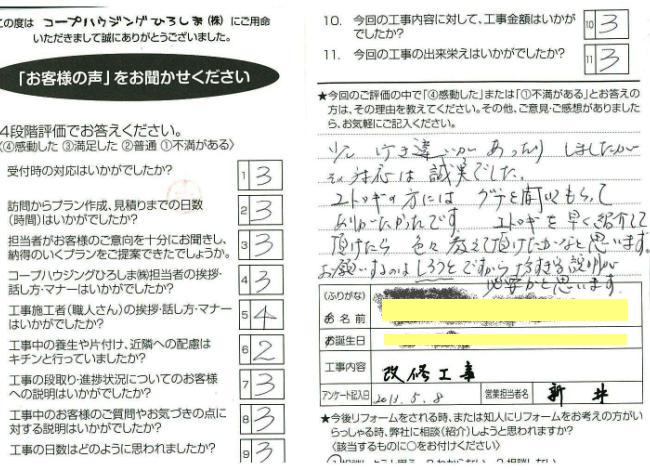 この度は コープハウジングひろしま(株) にご用命
いただきまして誠にありがとうございました。
「お客様の声」をお聞かせください
4段階評価でお答えください。
〈④感動した ③満足した ②普通 ①不満がある〉
受付時の対応はいかがでしたか?
1 3
訪問からプラン作成、見積りまでの日数
(時間)はいかがでしたか?
2 3
担当者がお客様のご意向を十分にお聞きし、
納得のいくプランをご提案できたでしょうか。
3 3
コープハウジングひろしま㈱担当者の挨拶・
話し方・マナーはいかがでしたか?
4 3
工事施工者(職人さん)の挨拶・話し方・マナー
はいかがでしたか?
5 4
工事中の養生や片付け、近隣への配慮は
キチンと行っていましたか?
6 2
工事の段取り・進捗状況についてのお客様
への説明はいかがでしたか?
7 3
工事中のお客様のご質問やお気づきの点に
対する説明はいかがでしたか?
8 3
工事の日数はどのように思われましたか?
9 3
10. 今回の工事内容に対して、工事金額はいかが
でしたか?
10 3
11. 今回の工事の出来栄えはいかがでしたか?
11 3
★今回のご評価の中で「④感動した」または「①不満がある」とお答えの
方は、その理由を教えてください。その他、ご意見・ご感想がありました
ら、お気軽にご記入ください。
少し 行き違いが あったり しましたが
その対応は 誠実でした。
ユトッギの方には グチを聞いてもらって
ありがたかったです。 ユトッギを早く紹介して
頂けたら 色々教えて頂けたかなと思います。
お願いするのは しろうとですから 説明が
必要かと思います
(ふりがな)
お 名 前
お誕生日
工事内容
改修工事
アンケート記入日 2013. 5. 8 営業担当者名 新井
★今後リフォームをされる時、または知人にリフォームをお考えの方がい
らっしゃる時、弊社に相談(紹介)しようと思われますか?
〈該当するものに○をお付けください〉